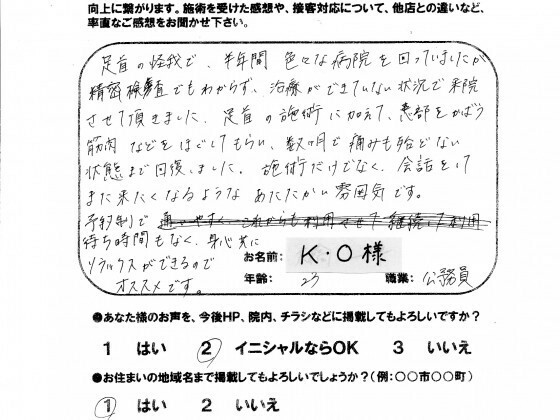 向上に繋がります。施術を受けた感想や、接客対応について、他店との違いなど、
率直なご感想をお聞かせ下さい。
足首の怪我で、半年間 色々な病院を回っていましたが
精密検査でもわからず、治療ができていない状況で来院
させて頂きました。足首の施術に加えて、患部をかばう
筋肉などをほぐしてもらい、数ヶ月で痛みも殆どない
状態まで回復しました。施術だけでなく、会話をして
また来たくなるような あたたかい雰囲気です。
予約制で 通いやすく これからも利用させて 継続して利用
待ち時間もなく、身心共に
リラックスができるので
オススメです。
お名前: K・O様
年齢: 23 職業: 公務員
●あなた様のお声を、今後HP、院内、チラシなどに掲載してもよろしいですか?
1 はい 2 イニシャルならOK 3 いいえ
●お住まいの地域名まで掲載してもよろしいでしょうか?(例:〇〇市〇〇町)
1 はい 2 いいえ